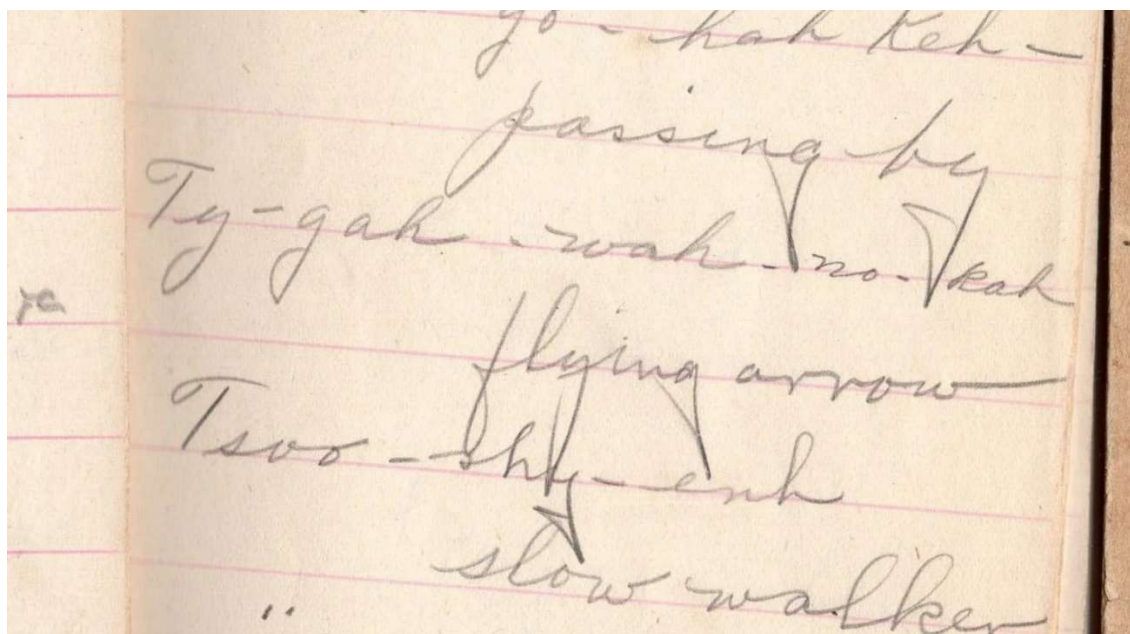 go - hah Keh -
passing by
Ty - gah - wah - no - kah
flying arrow
Tsoo - shy - enh
slow walker